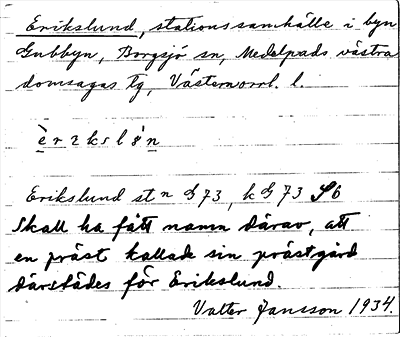 Erikslund, stationssamhälle i byn
Gubbyn, Borgsjö sn, Medelpads västra
domsagas tg, Västernorrl. l.
Erikslund stn G 73, k G 73 S6
Skall ha fått namn därav, att
en präst kallade sin prästgård
därstädes för Erikslund.
Valter Jansson 1934.